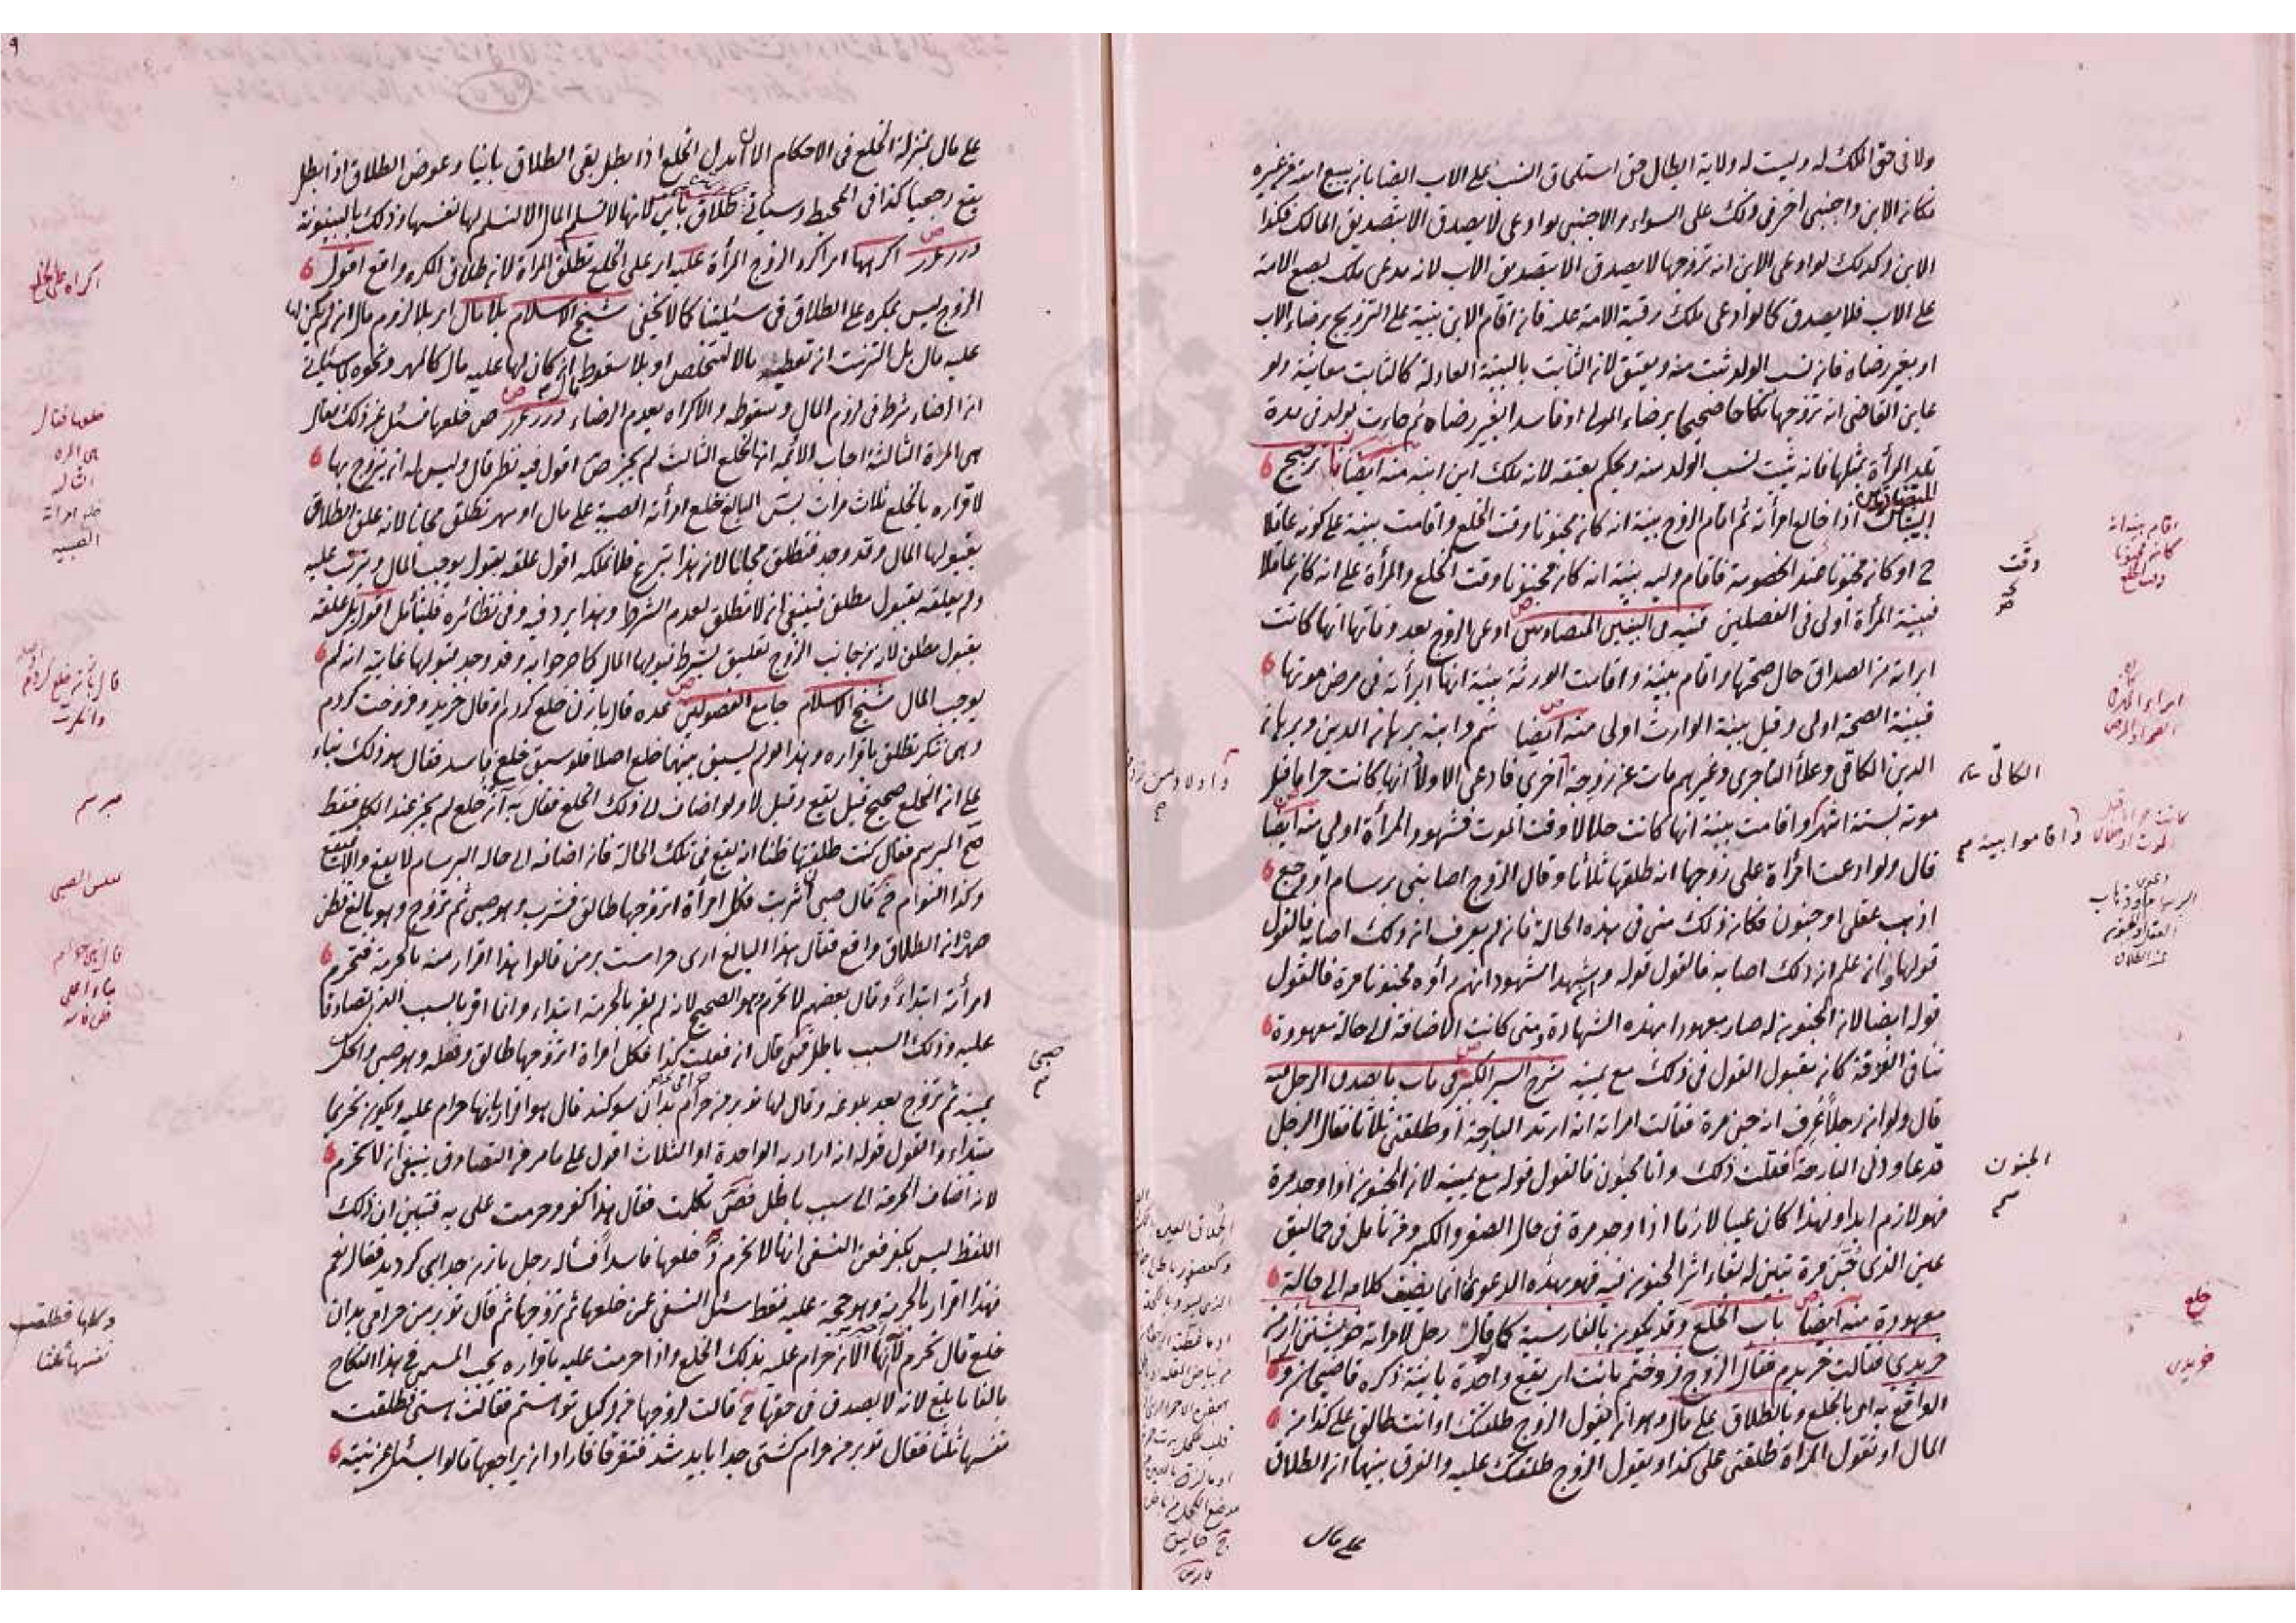 ولا فى حق الملك له وليست له ولاية ابطال حق استلحاق النسب على الاب ايضا بان يبيع امته من غيره
فكان الابن واجنبى اخر فى ذلك على السواء والاجنبى لو ادعى لا يصدق الا بتصديق المالك فكذا
الابن وكذلك لو ادعى الابن انه تزوجها لا يصدق الا بتصديق الاب لانه مدعى ملك بضع الامة
على الاب فلا يصدق كما لو ادعى ملك رقبة الامة عليه فان اقام الابن بينة على التزويج برضاء الاب
او بغير رضاه فان نسب الولد ثبت منه ويعتق لانه الثابت بالبينة العادلة كالثابت معاينة ولو
عاين القاضى انه تزوجها نكاحا صحيحا برضاء المولى او فاسدا بغير رضاه ثم جاءت بولد فى مدة
تلد المرأة لمثلها فانه يثبت نسب الولد منه ويحكم بعتقه لانه ملك ابن ابنه منه ايضا ترجيح
البينات اذا خالع امرأته ثم اقام الزوج بينة انه كان مجنونا وقت الخلع واقامت بينة على كونه عاقلا
ح او كان مجنونا عند الخصومة فاقام وليه بينة انه كان مجنونا وقت الخلع والمرأة على انه كان عاقلا
فبينة المرأة اولى فى الفصلين قنيه فى البينتين المتضادتين ادعى الزوج بعد وفاتها انها كانت
ابرأته من الصداق حال صحتها واقام بينة واقامت الورثة بينة انها ابرأته فى مرض موتها
فبينة الصحة اولى وقيل بينة الوارث اولى منه ايضا شم وابنه برهان الدين وبرهان
الدين الكافى وعلاء التاجرى وغيرهم مات عن زوجة اخرى فادعى الاولاد انها كانت حراما قبل
موته بستة اشهر واقامت بينة انها كانت حلالا وقت الموت فشهود المرأة اولى منه ايضا
قال ولو ادعت امرأة على زوجها انه طلقها ثلاثا وقال الزوج اصابنى برسام او وجع
اذهب عقلى او جنون فكان ذلك منى فى هذه الحالة فان لم يعرف ان ذلك اصابه فالقول
قولها وان علم ان ذلك اصابه فالقول قوله وان شهد الشهود انهم رأوه مجنونا مرة فالقول
قوله ايضا لان الجنون له صار معهودا بهذه الشهادة ومتى كانت الاضافة الى حالة معهودة
تنافى الفرقة كان مقبول القول فى ذلك مع يمينه شرح السير الكبير فى باب ما يصدق الرجل فيه
قال ولو ان رجلا عرف انه جن مرة فقالت امراته انه ارتد البارحة او طلقنى ثلاثا فقال الرجل
قد عاودنى البارحة فقلت ذلك وانا مجنون فالقول قوله مع يمينه لان الجنون اذا وجد مرة
فهو لازم ابدا ولهذا كان عيبا لازما اذا وجد مرة فى حال الصغر والكبر ومن تأمل فى حماليق
عينى الذى جن مرة تبين له بقاء اثر الجنون فيه فهو بهذه الدعوى انما يضيف كلامه الى حالة
معهودة منه ايضا باب الخلع وقد يكون بالفارسية كما قال رجل لامراته خويشتن از من
خريدى فقالت خريدم فقال الزوج فروختم بانت اى يقع واحدة باينة ذكره قاضيخان و
الواقع به اى بالخلع وبالطلاق على مال وهو ان يقول الزوج طلقتك او انت طالق على كذا من
المال او تقول المرأة طلقنى على كذا ويقول الزوج طلقتك عليه والفرق بينهما ان الطلاق
على مال
اقام بينة انه
كان مجنونا
وقت الخلع
وقت
الكافى
واقاموا بينة
الجنون
خلع
خريدى
على مال بمنزلة الخلع فى الاحكام الا ان بدل الخلع اذا بطل بقى الطلاق باينا وعوض الطلاق اذا بطل
يقع رجعيا كذا فى المحيط وسياتى طلاق باين لانها لا تسلم المال الا لتسلم لها نفسها وذلك بالبينونة
درر غرر اكرهها اى اكره الزوج المرأة عليه اى على الخلع تطلق المرأة لان طلاق المكره واقع اقول
الزوج ليس بمكره على الطلاق فى مسئلتنا كما لا يخفى شيخ الاسلام بلا مال اى بلا لزوم مال ان لم يكن لها
عليه مال بل التزمت ان تعطيه مالا لتتخلص او بلا سقوط مال ان كان لها عليه مال كالمهر ونحوه كما سياتى
ان الرضاء شرط فى لزوم المال وسقوطه والاكراه يعدم الرضاء درر غرر ص خلعها فسئل عن ذلك فقال
هى المرة الثالثة اجاب الائمه انها الخلع الثالث لم يجز ص اقول فيه نظر قال وليس له ان يتزوج بها
لاقراره بالخلع ثلاث مرات بس البالغ خلع امرأته الصبية على مال او مهر تطلق مجانا لانه علق الطلاق
بقبولها المال وقد وجد فتطلق مجانا لان هذا تبرع فلا تملكه اقول علقه بقبول يوجب المال ويترتب عليه
ولم يعلقه بقبول مطلق فينبغى ان لا تطلق لعدم الشرط وهذا يرد فيه وفى نظائره فليتأمل اقول بل علقه
بقبول مطلق لانه من جانب الزوج تعليق بشرط قبولها المال كما صرحوا به وقد وجد قبولها غايته انه لم
يوجب المال شيخ الاسلام جامع الفصولين عده قال بازن خلع كردم او قال خريد وفروخت كردم
وهى تنكر تطلق باقراره وهذا لو لم يسبق بينهما خلع اصلا فلو سبق خلع فاسد فقال هو ذلك بناء
على انه الخلع صحيح قيل يقع وقيل لا ولو اضاف الى ذلك الخلع فقال به آن خلع لم يجز عند الكل فقط
صح المبرسم فقال كنت طلقتها ظنا انه يقع فى تلك الحالة فان اضافه الى حالة البرسام لا يقع والا يقع
وكذا النوام قال صبى ان شربت فكل امرأة اتزوجها طالق فشرب وهو صبى ثم تزوج وهو بالغ فظن
صهره ان الطلاق واقع فقال هذا البالغ ارى حرامست بر من قالوا هذا اقرار منه بالحرمة فتحرم
امرأته ابتداء وقال بعضهم لا تحرم وهو الصحيح لانه لم يقر بالحرمة ابتداء وانما اقر بالسبب الذى تصادقا
عليه وذلك السبب باطل قال ان فعلت كذا فكل امرأة اتزوجها طالق وفعله وهو صبى
ثم تزوج بعد بلوغه وقال لها تو بر من حرامى بدان سوكند قال هو اقرار بانها حرام عليه ويكون تحريما
مبتداء والقول قوله ان اراد به الواحدة او الثلاث اقول على ما مر من التصادق ينبغى ان لا تحرم
لانه اضاف الحرمة الى سبب باطل تكلمت فقال هذا كفر وحرمت على به فتبين ان ذلك
اللفظ ليس بكفر فعن النسفى انها لا تحرم خلعها فاسدا فسأله رجل بازن جدايى كرديد فقال نعم
فهذا اقرار بالحرمة وهو حجة عليه فقط سئل النسفى عمن خلعها ثم تزوجها ثم قال تو بر من حرامى بدان
خلع قال تحرم لانه اقر الان انها حرام عليه بذلك الخلع واذا حرمت عليه باقراره يجب المسمى فى هذا النكاح
بالغا ما بلغ لانه لا يصدق فى حقها قالت لزوجها من وكيل تو استم فقالت استى فطلقت
نفسها ثلثا فقال تو بر من حرام كشتى جدا بايد شد فتفرقا فاراد ان يراجعها قالوا يسئل عن نيته
اكراه على الخلع
خلعها فقال
هى المرة
الثالثة
خلع امراته
الصبية
مبرسم
صبى
وكلها فطلقت
نفسها ثلثا